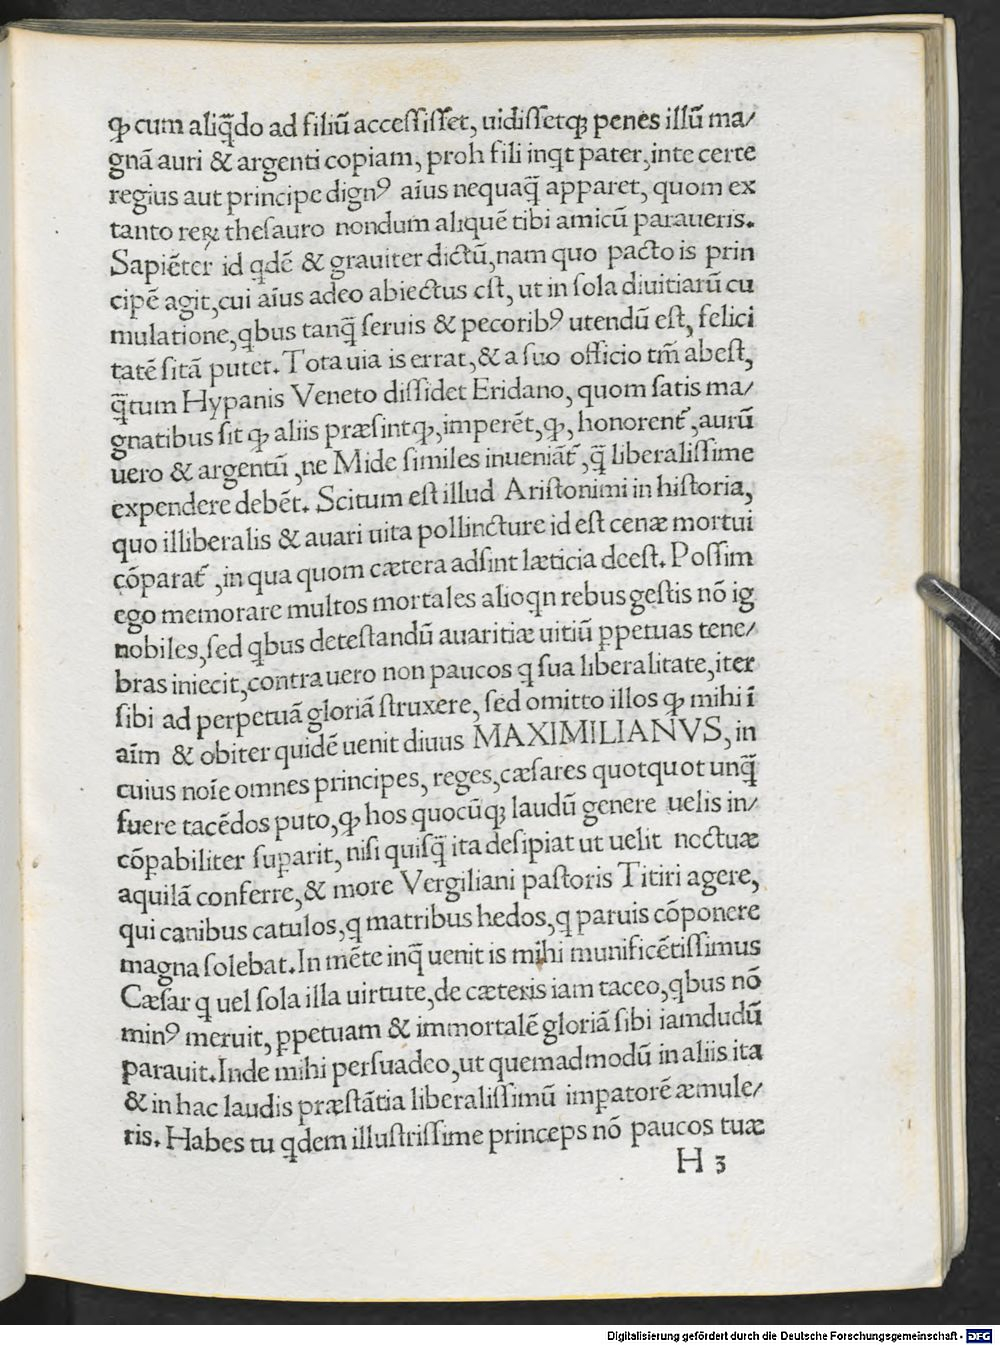 ꝙ cum aliq̄do ad filiū accessisset, uidissetqꝫ penes illū ma/
gnā auri & argenti copiam, proh fili inqt pater, in te certe
regius aut principe dignꝰ aīus nequaq̄ apparet, quom ex
tanto reꝝ thesauro nondum aliquē tibi amicū paraueris.
Sapiēter id qdē & grauiter dictū, nam quo pacto is prin
cipē agit, cui aīus adeo abiectus est, ut in sola diuitiarū cu
mulatione, qbus tanq̄ seruis & pecoribꝰ utendū est, felici
tatē sitā putet. Tota uia is errat, & a suo officio tm̄ abest,
q̄tum Hypanis Veneto dissidet Eridano, quom satis ma/
gnatibus sit ꝙ aliis præsint, ꝙ, imperēt, ꝙ, honorent᷑, aurū
uero & argentū, ne Mide similes inueniāt᷑, q̄ liberalissime
expendere debēt. Scitum est illud Aristonimi in historia,
quo illiberalis & auari uita pollincture id est cenæ mortui
cōparat᷑, in qua quom cætera adsint læticia deest. Possim
ego memorare multos mortales alioqn rebus gestis nō ig
nobiles, sed qbus detestandū auaritiæ uitiū ꝑpetuas tene/
bras iniecit, contra uero non paucos q sua liberalitate, iter
sibi ad perpetuā gloriā struxere, sed omitto illos ꝙ mihi ī
aīm & obiter quidē uenit diuus MAXIMILIANVS, in
cuius noīe omnes principes, reges, cæsares quotquot unq̄
fuere tacēdos puto, ꝙ hos quocūqꝫ laudū genere uelis in/
cōpabiliter suꝑarit, nisi quisq̄ ita desipiat ut uelit noctuæ
aquilā conferre, & more Vergiliani pastoris Titiri agere,
qui canibus catulos, q matribus hedos, q paruis cōponere
magna solebat. In mēte inq̄ uenit is mihi munificētissimus
Cæsar q uel sola illa uirtute, de cæteris iam taceo, qbus nō
minꝰ meruit, ꝑpetuam & immortalē gloriā sibi iamdudū
parauit. Inde mihi persuadeo, ut quemadmodū in aliis ita
& in hac laudis præstātia liberalissimū imꝑatorē æmule/
ris. Habes tu qdem illustrissime princeps nō paucos tuæ
H 3
Digitalisierung gefördert durch die Deutsche Forschungsgemeinschaft - DFG